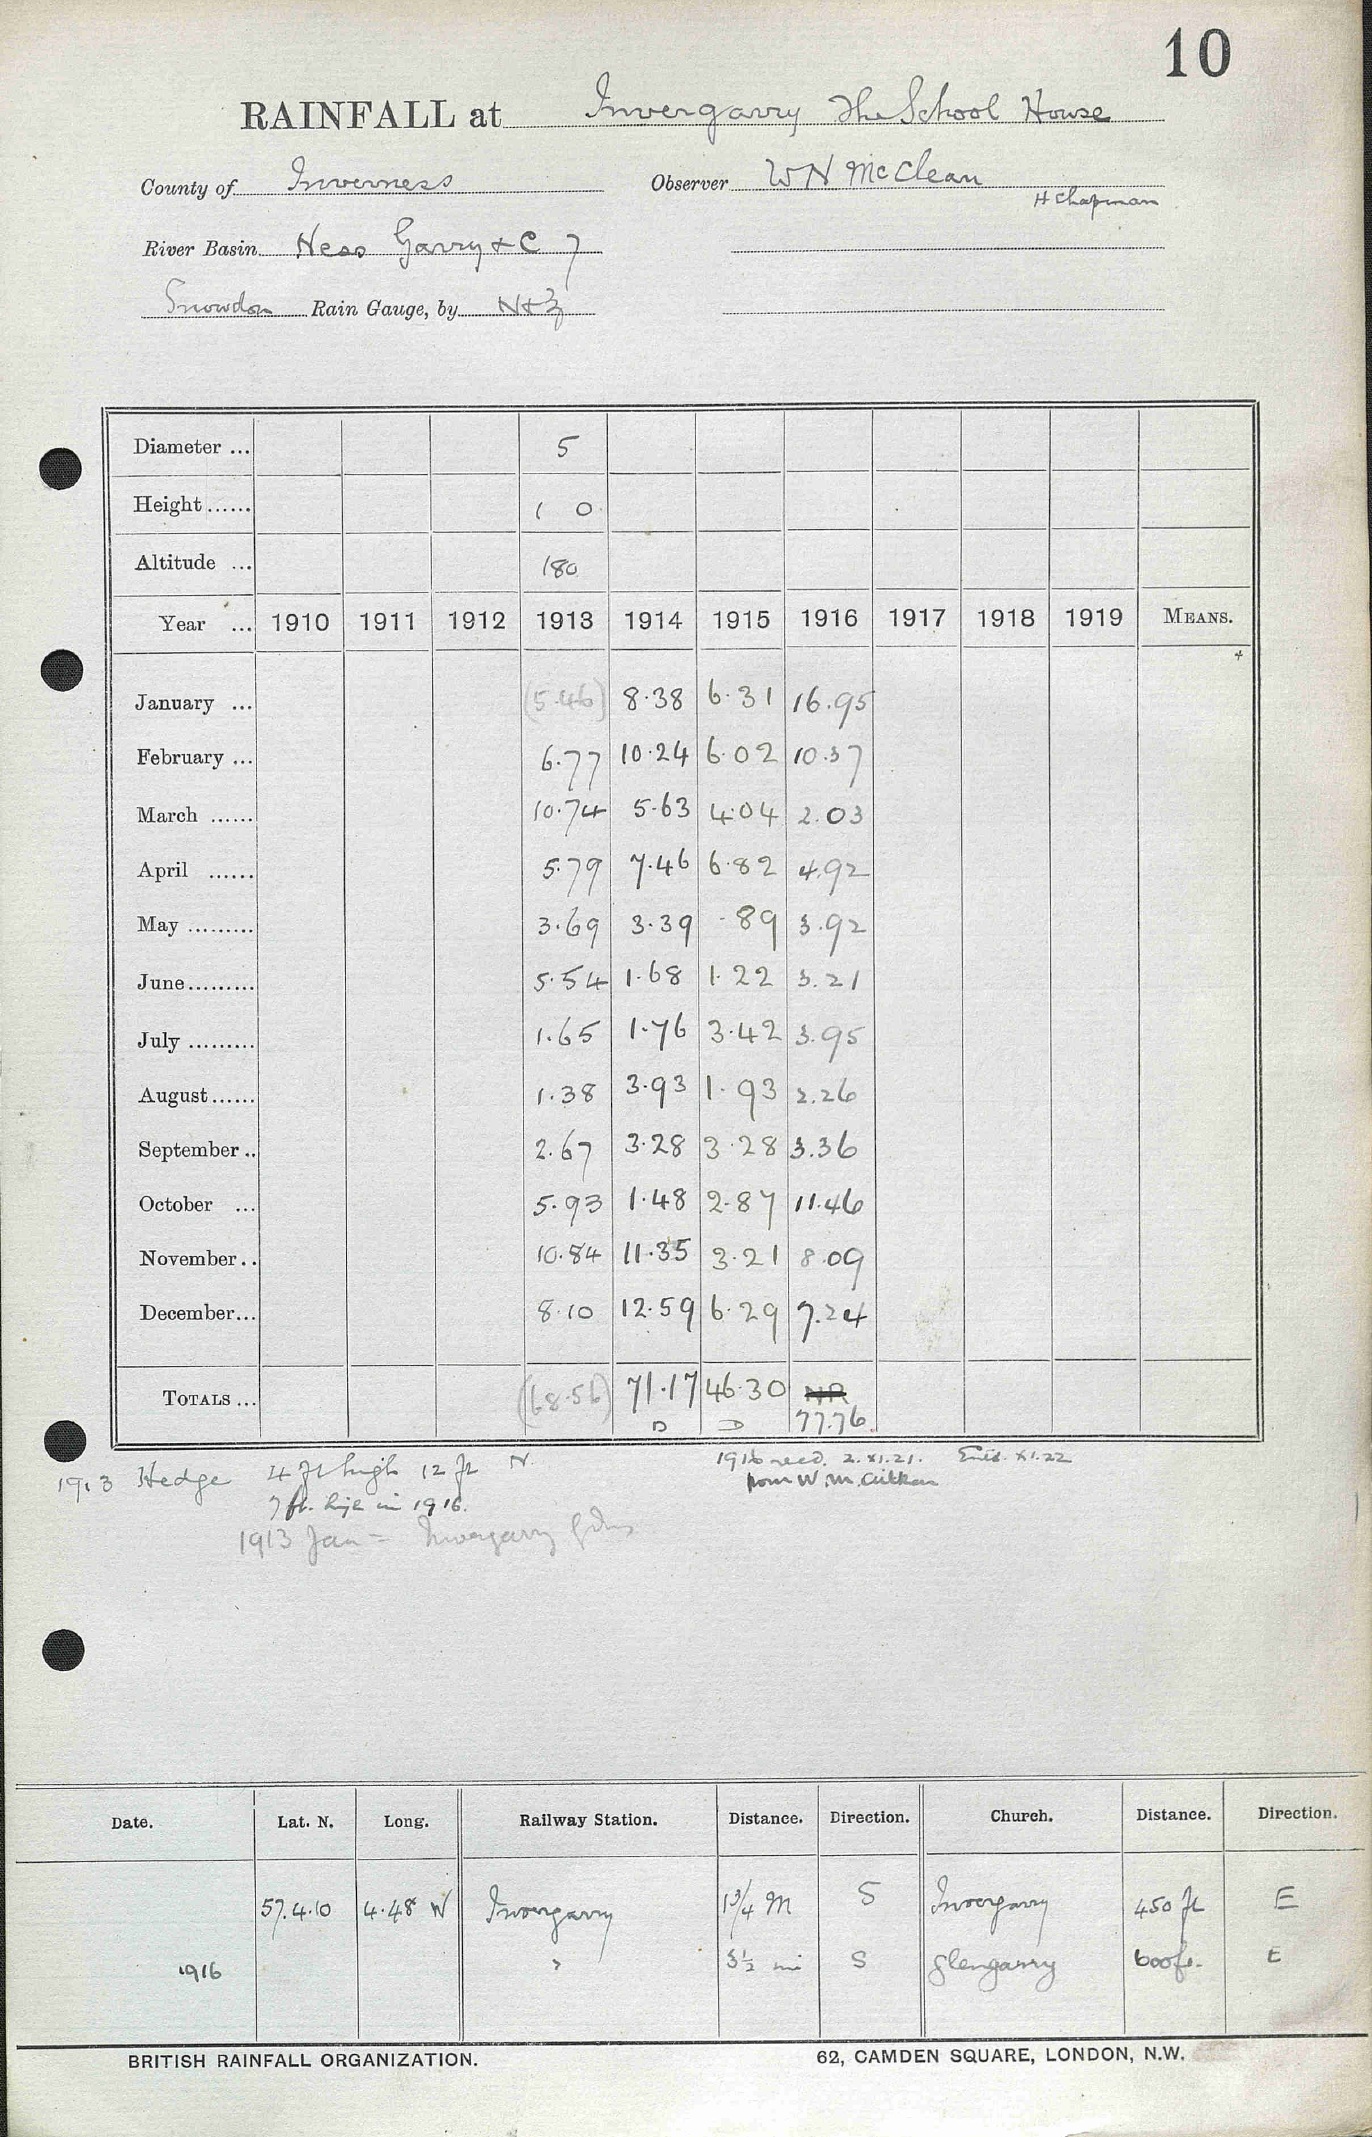 10
RAINFALL at Invergarry The School House
County of Inverness Observer W N McClean
H Chapman
River Basin Ness Garry & C 7
Snowdon Rain Gauge, by N & Z
Diameter ... 5
Height ...... 1 0
Altitude ... 180
Year ... 1910 1911 1912 1913 1914 1915 1916 1917 1918 1919 MEANS.
January ... (5.46) 8.38 6.31 16.95
February ... 6.77 10.24 6.02 10.37
March ...... 10.74 5.63 4.04 2.03
April ...... 5.79 7.46 6.82 4.92
May ......... 3.69 3.39 .89 3.92
June ......... 5.54 1.68 1.22 3.21
July ......... 1.65 1.76 3.42 3.95
August ...... 1.38 3.93 1.93 2.26
September .. 2.67 3.28 3.28 3.36
October ... 5.93 1.48 2.87 11.46
November .. 10.84 11.35 3.21 8.09
December ... 8.10 12.59 6.29 7.24
TOTALS ... (68.56) 71.17 46.30 NR
D D 77.76
1913 Hedge 4 ft high 12 ft N. 1916 recd. 2.XI.21. Entd. XI.22
7 ft. high in 1916. from W. M. Aitken
1913 Jan = Invergarry Gdns
Date. Lat. N. Long. Railway Station. Distance. Direction. Church. Distance. Direction.
57.4.10 4.48 W Invergarry 1 3/4 M S Invergarry 450 ft E
1916 " 3 1/2 mi S Glengarry 600 ft. E
BRITISH RAINFALL ORGANIZATION. 62, CAMDEN SQUARE, LONDON, N.W.